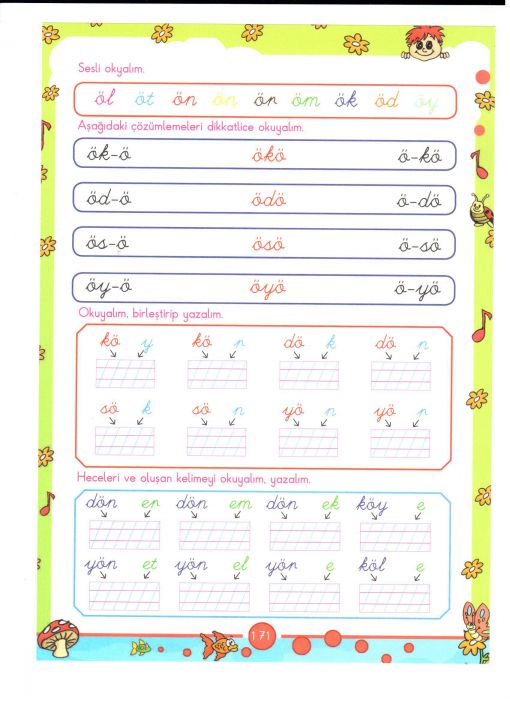 Sesli okyalım.
öl öt ön ön ör öm ök öd öy
Aşağıdaki çözümlemeleri dikkatlice okuyalım.
ök-ö ökö ö-kö
öd-ö ödö ö-dö
ös-ö ösö ö-sö
öy-ö öyö ö-yö
Okuyalım, birleştirip yazalım.
kö y kö r dö k dö n
sö k sö n yö n yö r
Heceleri ve oluşan kelimeyi okuyalım, yazalım.
dön er dön em dön ek köy e
yön et yön el yör e köl e
171